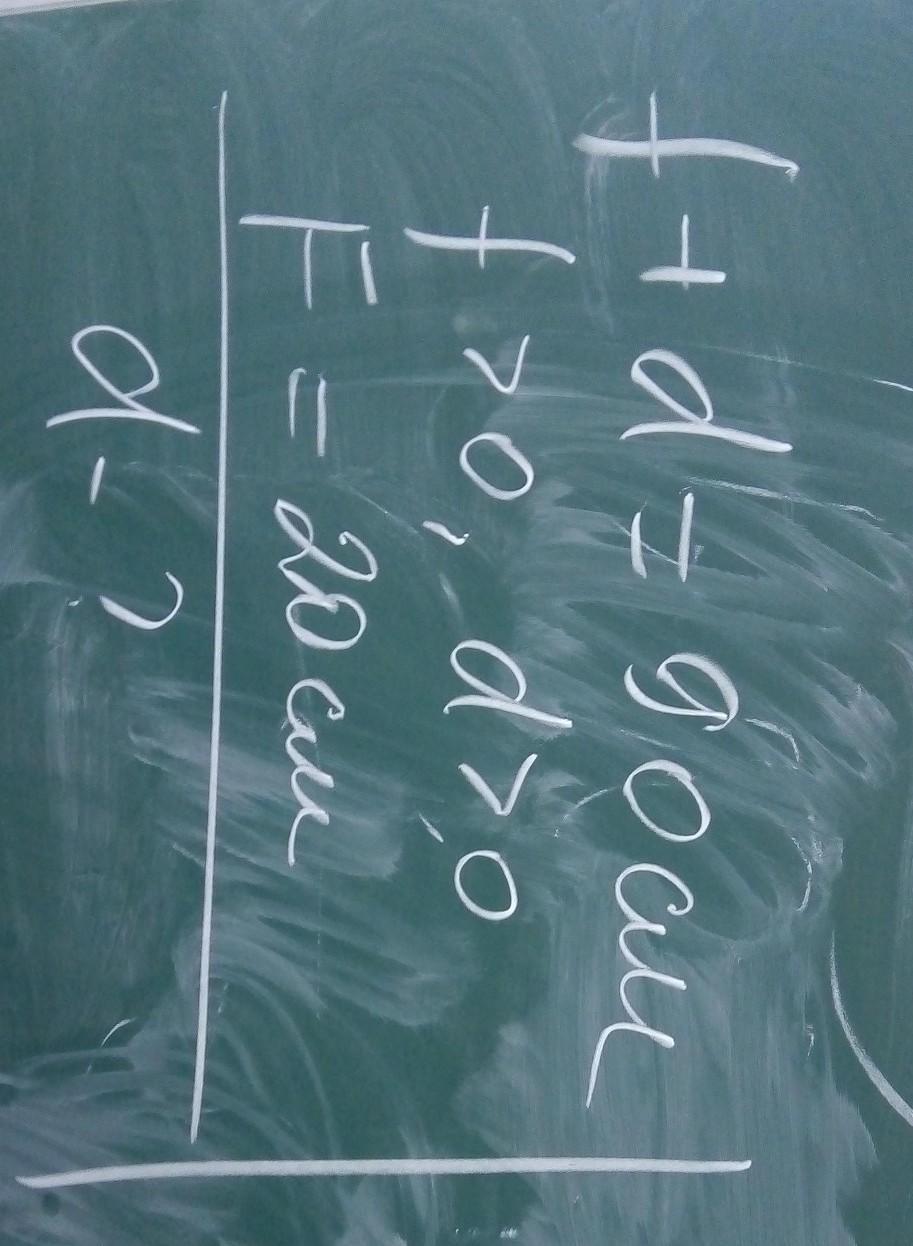 f + d = 90 см
f > 0, d > 0
F = 20 см
d - ?